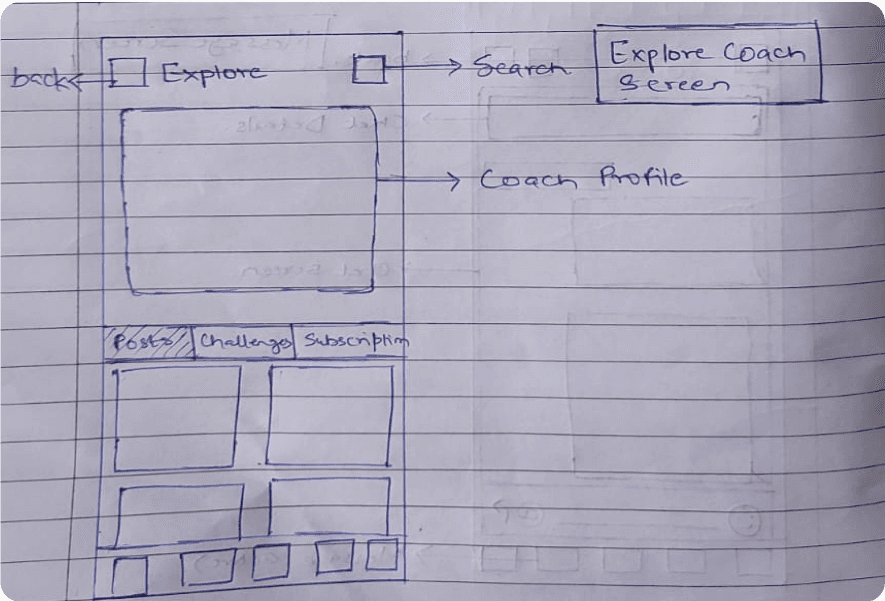 back
Explore
Search
Explore Coach
Screen
Coach Profile
Posts
Challenges
Subscription